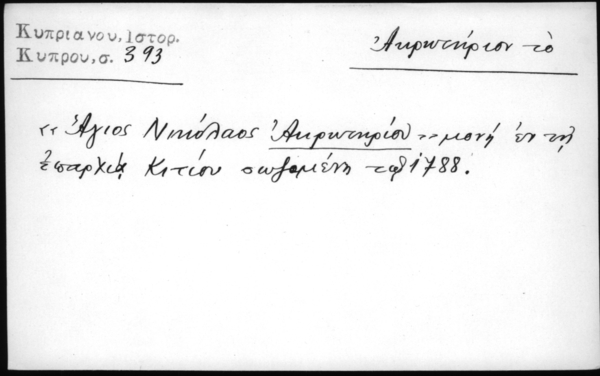 Κυπριανου, Ιστορ.
Κυπρου, σ. 393
Ἀκρωτήριον τὸ
«Ἅγιος Νικόλαος Ἀκρωτηρίου» μονή ἐν τῇ
ἐπαρχίᾳ Κιτίου σωζομένη τῷ 1788.